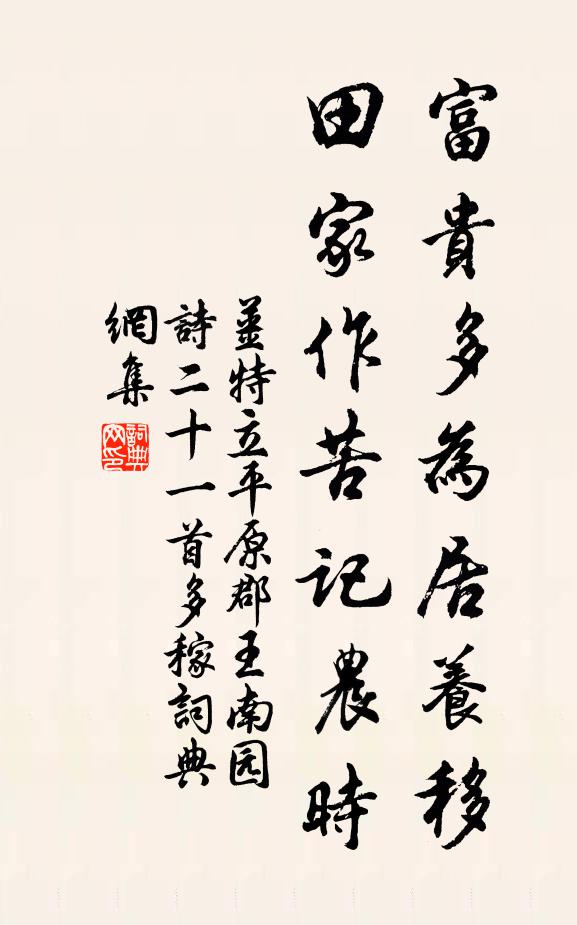 富貴多為居養移
田家作苦記農時
姜特立平原郡王南园
詩二十一首多稼詞典
網集
詞典網印